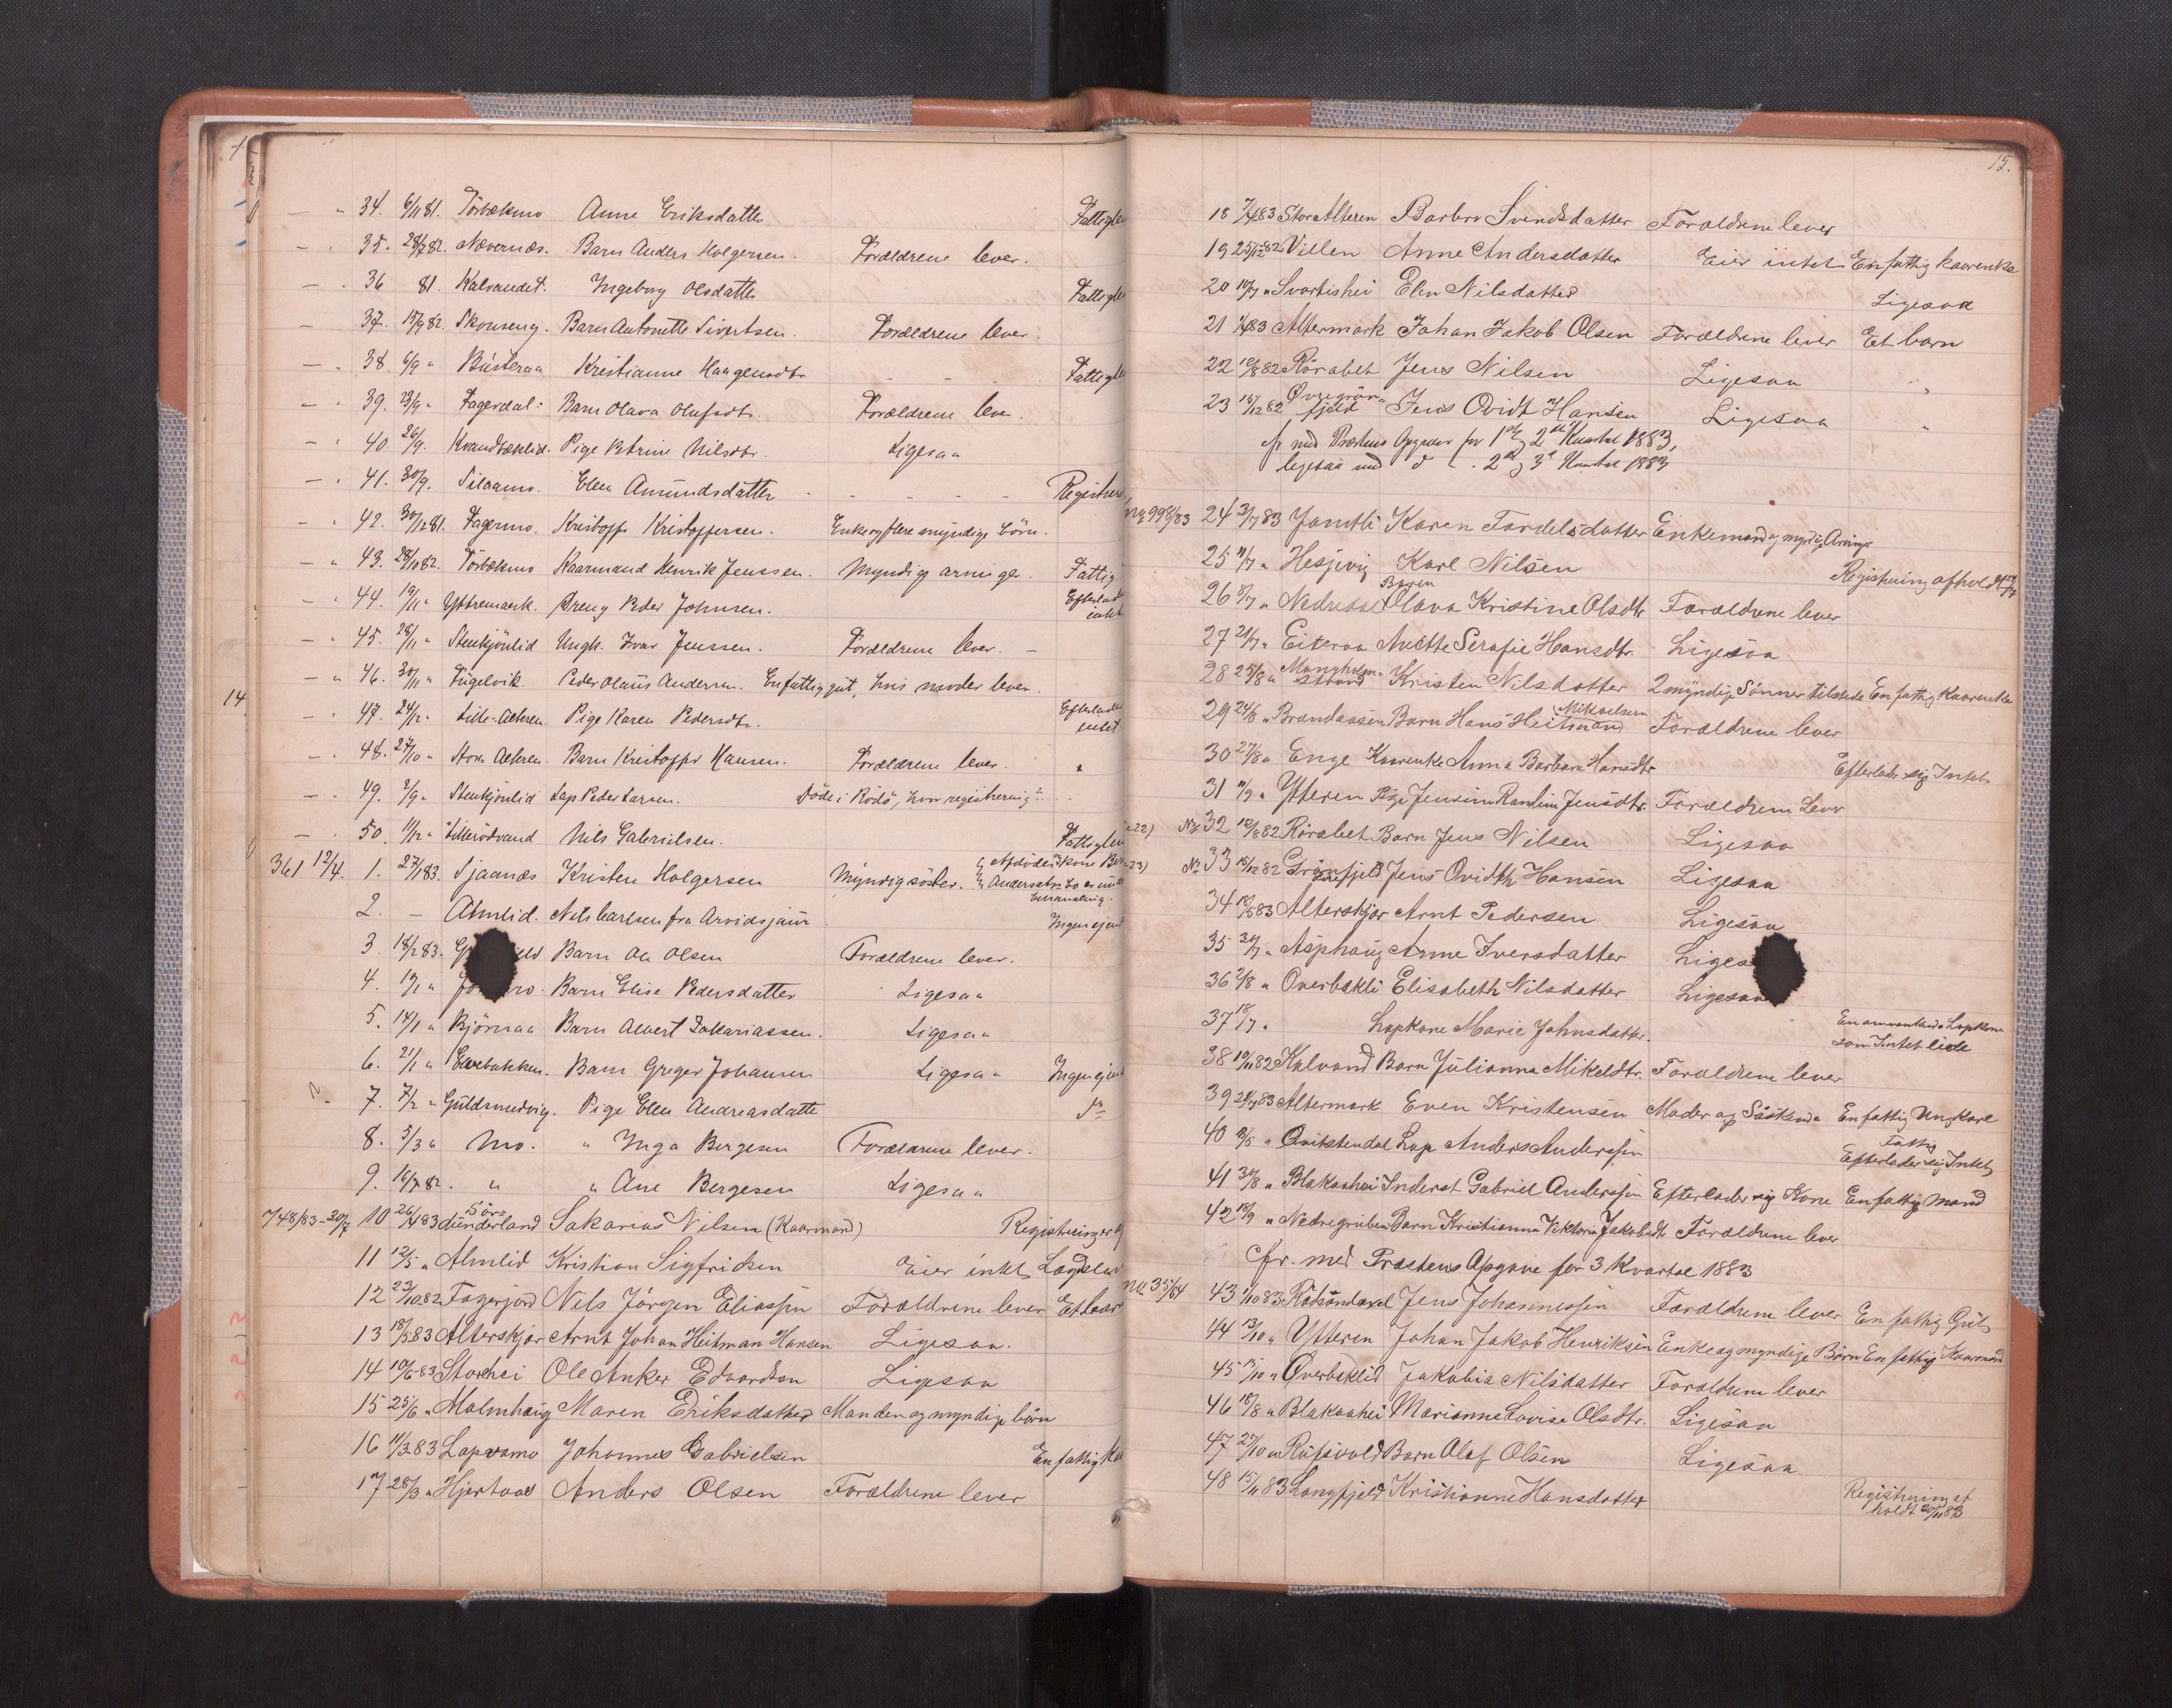 34. 6/11 81. Törbækmo Anne Eriksdatter Fattigle
35. 28/7 82. Nævernæs. Barn Anders Holgersen. Forældrene lever.
36 81. Kalvandet. Ingeborg Olsdatter Fattigle
37. 15/9 82. Skonseng. Barn Antonette Sivertsen. Forældrene lever.
38. 6/9 " Büsteraa Kristianne Haagensdtr Fattigle
39. 23/9 " Fagerdal. Barn Olava Olufsdtr. Forældrene lever.
40. 26/9. Kvandbæklid. Pige Petrine Nilsdtr. Ligesaa
41. 30/9. Silaamo. Ellen Amundsdatter Registrer
42. 30/12 81. Fagermo. Kristoffer Kristoffersen. Enke og flere myndige börn.
43. 28/10 82. Törbækmo Kaarmand Henrik Jenssen. Myndige arvinger. Fattig
44. 19/11 " Yttremark. Dreng Peder Johnsen. Efterlad intet
45. 28/11 " Stenkjönlid Ungk. Ivar Jenssen. Forældrene lever.
46. 30/11 " Fugelvik. Peder Olaus Andersen. En fattig gut, hvis moder lever.
14
47. 24/12. Lille-Alteren. Pige Karen Pedersdtr. Efterlader intet
48. 27/10 " Store Alteren. Barn Kristoffer Hansen. Forældrene lever.
49. 2/9 " Stenkjönlid Lap Peder Larsen. Döde i Rödö, hvor registrering
50. 11/12 " Lillerödvand Nils Gabrielsen. Fattigle
361 12/4. 1. 27/1 83. Sjaanæs Kristen Holgersen Myndig söster.
2. – Almlid. Nils Carlsen fra Arvidsjaur Ingen ejend
3. 18/2 83. Barn Ole Olsen Forældrene lever.
4. Barn Elise Pedersdatter Ligesaa
5. 14/1 " Bjömaa Barn Albert Zakariassen. Ligesaa
6. 21/1 " Barn Greger Johansen Ligesaa Ingen ejend
7. 7/2 " Guldsmedvig. Pige Ellen Andreasdatter
8. 5/3 " Mo. " Inga Bergesen Forældrene lever.
9. 82. " " Ane Bergesen Ligesaa
748/83 – 20/7 10 26/4 83 Sör dunderland Sakarias Nilsen (Kaarmand) Registrering
11 12/5 " Almlid Kristian Sigfridsen Eier intet Lægdsle
12 23/10 82 Fagerjord Nils Jörgen Eliassen Forældrene lever Et bar
13 18/5 83 Alterskjær Arnt Johan Heitman Hansen Ligesaa.
14 10/6 83 Storhei Ole Anker Edvardsen Ligesaa
15 25/6 " Malmhaug Maren Eriksdatter Manden og myndige börn
16 11/3 83 Lapvamo Johannes Gabrielsen En fattig
17 28/3 " Hjertaas Anders Olsen Forældrene lever
15.
18 83 Stor Alteren Barbro Svendsdatter Forældrene lever
19 25/12 82 Villen Anne Andersdatter Eier intet En fattig kaarenke
20 " Svartishei Elen Nilsdatter Ligesaa
21 83 Altermark Johan Jakob Olsen Forældrene lever Et barn
22 12/8 82 Rörabet Jens Nilsen Ligesaa "
23 16/12 82 Övregrönfjeld Jens Ovidt Hansen Ligesaa "
cfr med Præstens Opgaver for 1ste og 2det Kvartal 1883,
ligesaa med 2d og 3e Kvartal 1883
No 998/83 24 3/7 83 Jamtli Karen Fordelsdatter Enkemand og myndige Arvinge
25 11/7 " Hesjevig Karl Nilsen Registrering afholdt
26 8/7 " Barn Olava Kristine Olsdtr Forældrene lever
27 21/7 " Eiteraa Anette Serafie Hansdtr. Ligesaa
28 25/8 " Kristen Nilsdatter 2 myndige Sönner tilstede En fattig Kaarenke
29 24/8 " Brandaasen Barn Hans Heitmand Mikaelsen Forældrene lever
30 27/8 " Enge Kaarenke Anna Barbara Hansdtr Efterlader sig Intet
31 11/9 " Ytteren Pige Jensine Ranline Jensdtr. Forældrene Lever
22) No 32 12/8 82 Rörabet Barn Jens Nilsen Ligesaa
23) No 33 16/12 82 Grönfjeld Jens Ovidth Hansen Ligesaa
34 83 Alterskjær Arnt Pedersen Ligesaa
35 " Asphaug Anne Iversdatter Liges
36 2/8 " Överbækli Elisabeth Nilsdatter Ligesaa
37 18/7 " Lapkone Marie Johnsdatter. En omvankende Lapkone som Intet eiede
38 19/11 82 Kalvand Barn Julianna Mikeldtr. Forældrene lever
39 83 Altermark Even Kristensen Moder og Söskende En fattig Ungkarl
40 " Qvitstendal Lap Anders Anderssen Fattig Efterlader sig Intet
41 " Blakaahei Inderst Gabriel Anderssen Efterlader sig Kone En fattig Mand
42 " Nedregruben Barn Kristianna Viktoria Jakobsdtr Forældrene lever
Cfr. med Præstens Opgave for 3 Kvartal 1883
No. 35/84 43 83 Rödsandaxel Jens Johannessen Forældrene lever En fattig Gut
44 13/10 " Ytteren Johan Jakob Henriksen Enke og myndige Börn En fattig Kaarmand
45 " Överbæklid Jakobia Nilsdatter Forældrene lever
46 18/8 " Blakaahei Marianne Lovise Olsdtr. Ligesaa
47 27/10 " Rufsvold Barn Olaf Olsen Ligesaa
48 15/11 83 Langfjeld Kristianne Hansdatter Registrering af holdt